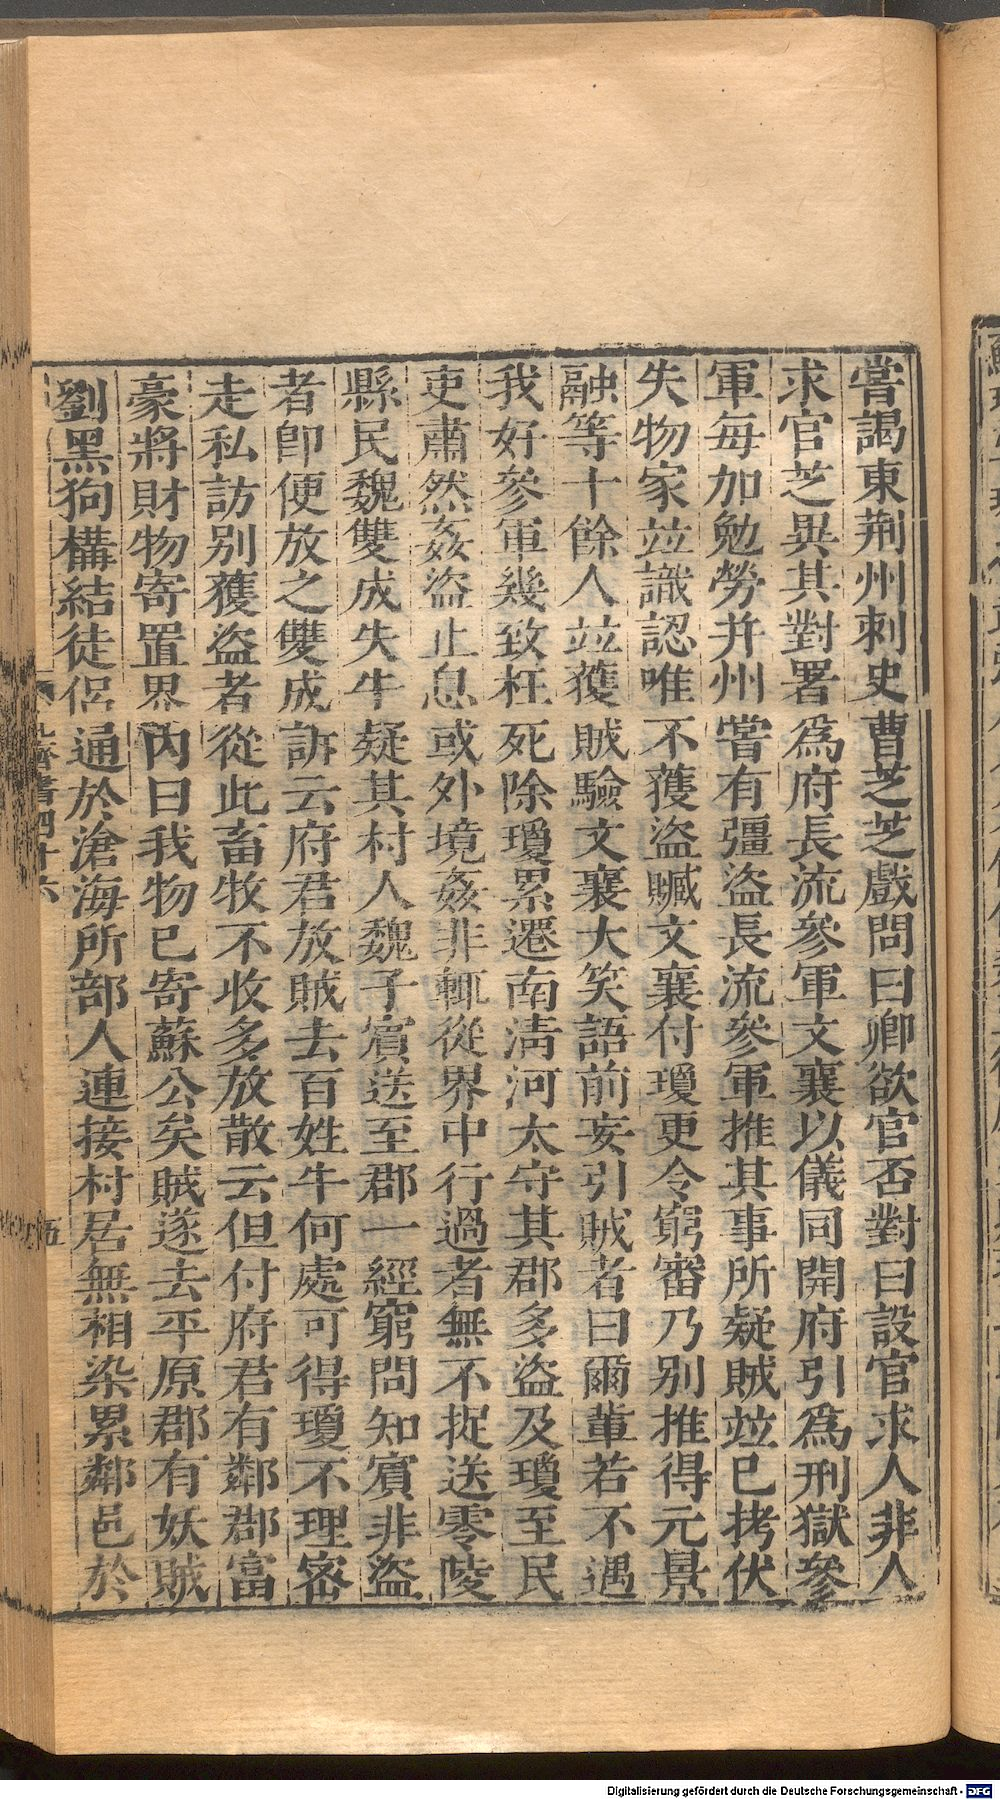 嘗謁東荆州刺史曹芝芝戲問曰卿欲官否對曰設官求人非人
求官芝異其對署為府長流參軍文襄以儀同開府引為刑獄參
軍每加勉勞并州嘗有彊盜長流參軍推其事所疑賊竝已拷伏
失物家竝識認唯不獲盜贓文襄付瓊更令窮審乃别推得元景
融等十餘人竝獲賊驗文襄大笑語前妄引賊者曰爾輩若不遇
我好參軍幾致枉死除瓊累遷南淸河太守其郡多盜及瓊至民
吏肅然姦盜止息或外境姦非輒從界中行過者無不捉送零陵
縣民魏雙成失牛疑其村人魏子賓送至郡一經窮問知賓非盜
者卽便放之雙成訴云府君放賊去百姓牛何處可得瓊不理密
走私訪别獲盜者從此畜牧不收多放散云但付府君有鄰郡富
豪將財物寄置界內曰我物已寄蘇公矣賊遂去平原郡有妖賊
劉黑狗構結徒侶通於滄海所部人連接村居無相染累鄰邑於
齊書四十六
五
Digitalisierung gefördert durch die Deutsche Forschungsgemeinschaft - DFG